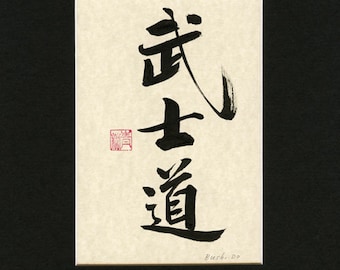 武士道
Bushi-Do